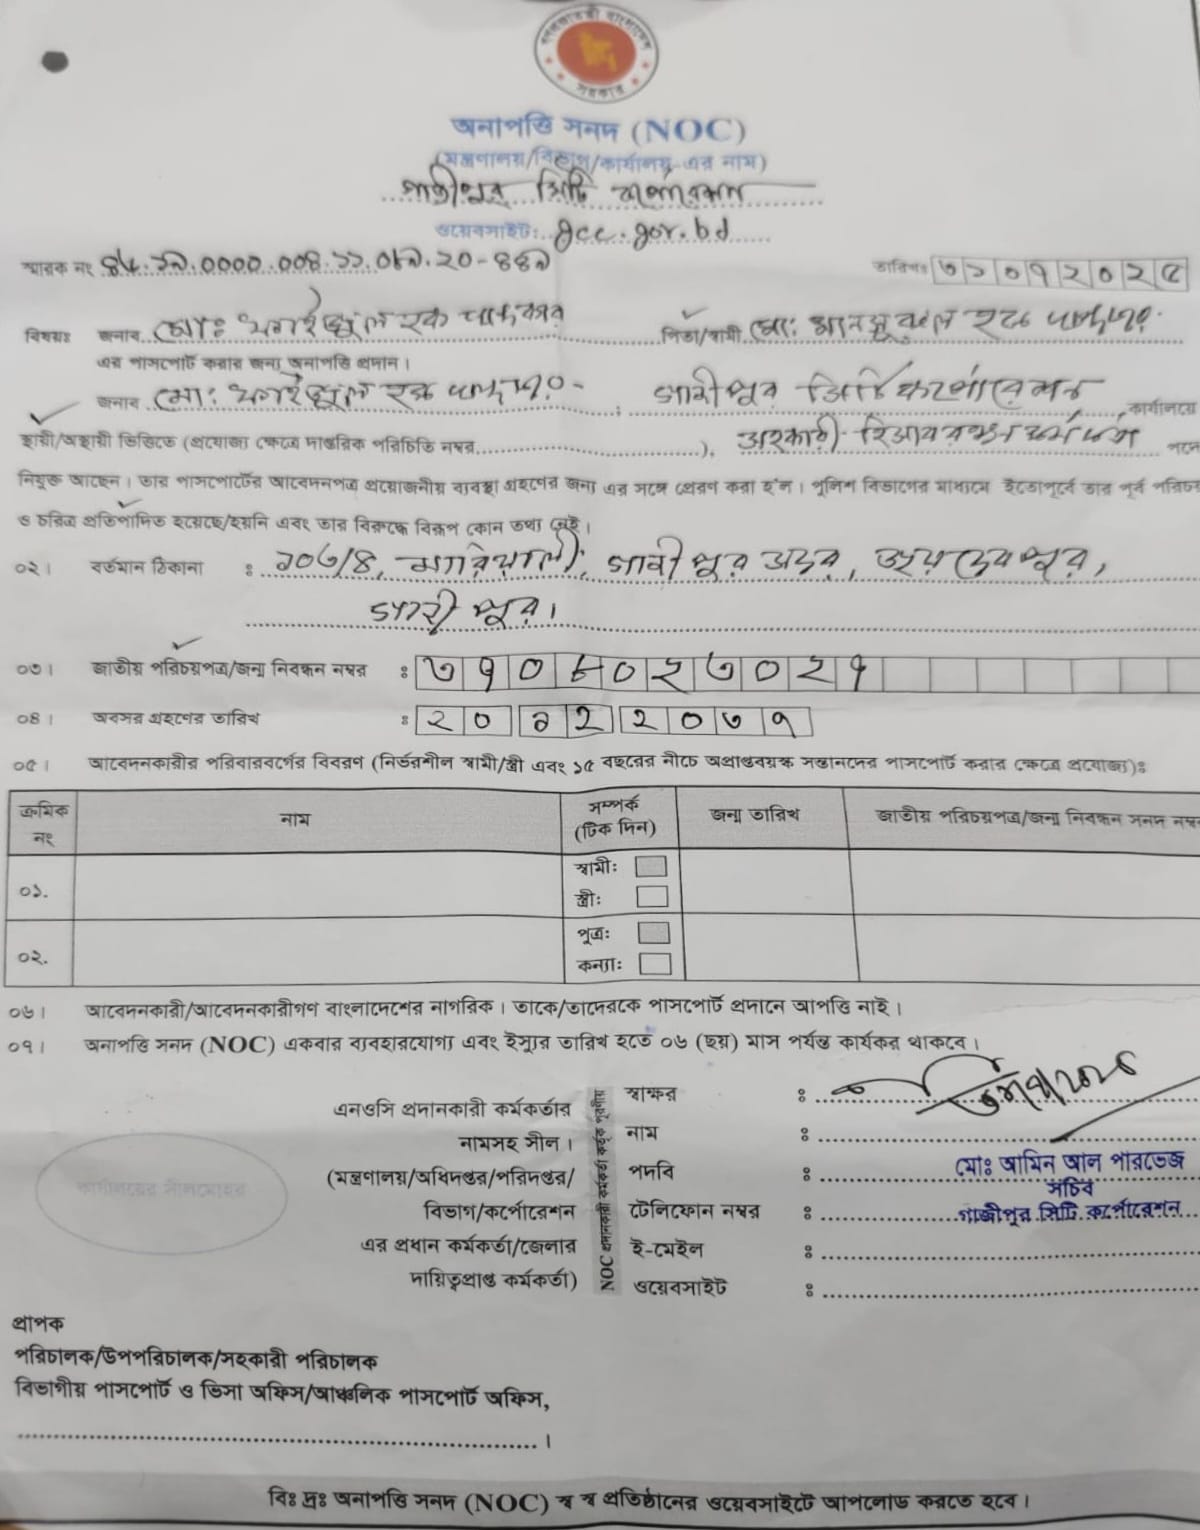 গণপ্রজাতন্ত্রী বাংলাদেশ
সরকার
অনাপত্তি সনদ (NOC)
(মন্ত্রণালয়/বিভাগ/কার্যালয়-এর নাম)
গাজীপুর সিটি কর্পোরেশন
ওয়েবসাইট: gcc.gov.bd
স্মারক নং ৪৬.১৯.০০০০.০০৪.১১.০৬৯.২০-৪৪৯
তারিখঃ ৩১০৭২০২৫
বিষয়ঃ জনাব মোঃ হক খন্দকার পিতা/স্বামী মোঃ হক খন্দকার
এর পাসপোর্ট করার জন্য অনাপত্তি প্রদান।
জনাব মোঃ হক খন্দকার, গাজীপুর সিটি কর্পোরেশন, কার্যালয়ে
স্থায়ী/অস্থায়ী ভিত্তিতে (প্রযোজ্য ক্ষেত্রে দাপ্তরিক পরিচিতি নম্বর..........), সহকারী হিসাবরক্ষণ কর্মকর্তা পদে
নিযুক্ত আছেন। তার পাসপোর্টের আবেদনপত্র প্রয়োজনীয় ব্যবস্থা গ্রহণের জন্য এর সঙ্গে প্রেরণ করা হ'ল। পুলিশ বিভাগের মাধ্যমে ইতোপূর্বে তার পূর্ব পরিচয়
ও চরিত্র প্রতিপাদিত হয়েছে/হয়নি এবং তার বিরুদ্ধে বিরূপ কোন তথ্য নেই।
০২। বর্তমান ঠিকানা : ১০৩/৪, মারিয়ালী, গাজীপুর সদর, জয়দেবপুর,
গাজীপুর।
০৩। জাতীয় পরিচয়পত্র/জন্ম নিবন্ধন নম্বর : ৩৭০৮০২৩০২৭
০৪। অবসর গ্রহণের তারিখ : ২০ ১২ ২০৩৭
০৫। আবেদনকারীর পরিবারবর্গের বিবরণ (নির্ভরশীল স্বামী/স্ত্রী এবং ১৫ বছরের নীচে অপ্রাপ্তবয়স্ক সন্তানদের পাসপোর্ট করার ক্ষেত্রে প্রযোজ্য)ঃ
ক্রমিক নং নাম সম্পর্ক (টিক দিন) জন্ম তারিখ জাতীয় পরিচয়পত্র/জন্ম নিবন্ধন সনদ নম্বর
০১. স্বামীঃ
স্ত্রীঃ
০২. পুত্রঃ
কন্যাঃ
০৬। আবেদনকারী/আবেদনকারীগণ বাংলাদেশের নাগরিক। তাকে/তাদেরকে পাসপোর্ট প্রদানে আপত্তি নাই।
০৭। অনাপত্তি সনদ (NOC) একবার ব্যবহারযোগ্য এবং ইস্যুর তারিখ হতে ০৬ (ছয়) মাস পর্যন্ত কার্যকর থাকবে।
এনওসি প্রদানকারী কর্মকর্তার
নামসহ সীল।
(মন্ত্রণালয়/অধিদপ্তর/পরিদপ্তর/
বিভাগ/কর্পোরেশন
এর প্রধান কর্মকর্তা/জেলার
দায়িত্বপ্রাপ্ত কর্মকর্তা)
কার্যালয়ের সীলমোহর
NOC প্রদানকারী কর্মকর্তা কর্তৃক পূরণীয়
স্বাক্ষর :
নাম :
পদবি :
টেলিফোন নম্বর :
ই-মেইল :
ওয়েবসাইট :
মোঃ আমিন আল পারভেজ
সচিব
গাজীপুর সিটি কর্পোরেশন
প্রাপক
পরিচালক/উপপরিচালক/সহকারী পরিচালক
বিভাগীয় পাসপোর্ট ও ভিসা অফিস/আঞ্চলিক পাসপোর্ট অফিস,
.......... ।
বিঃ দ্রঃ অনাপত্তি সনদ (NOC) স্ব স্ব প্রতিষ্ঠানের ওয়েবসাইটে আপলোড করতে হবে।